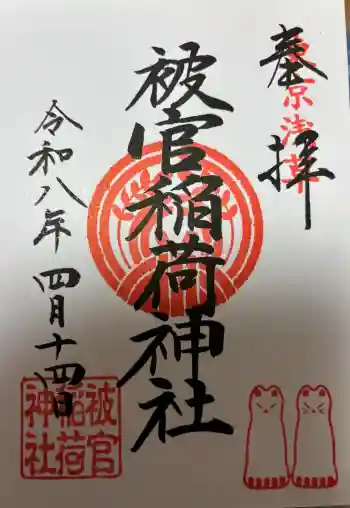 奉拝
東京浅草
被官稲荷神社
令和八年四月十四日
被官
稲荷
神社